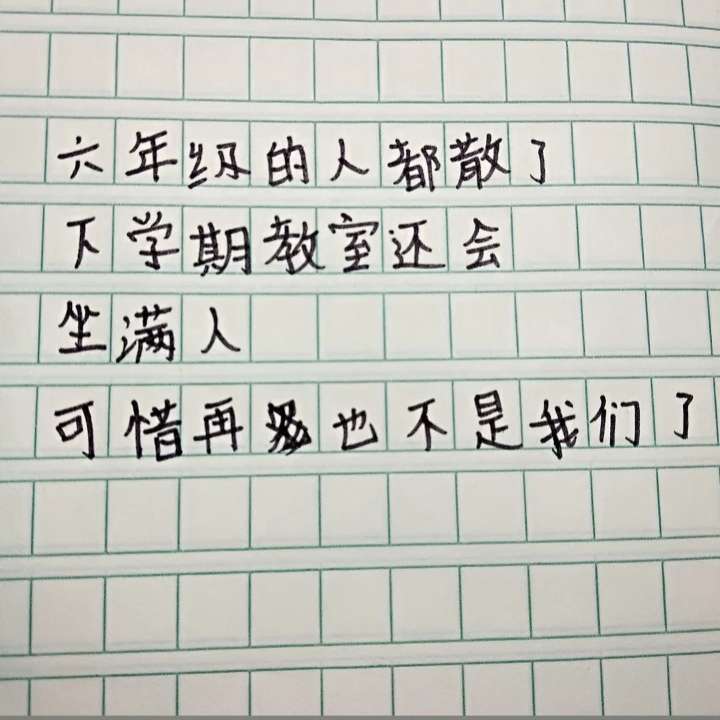 六年级的人都散了
下学期教室还会
坐满人
可惜再也不是我们了